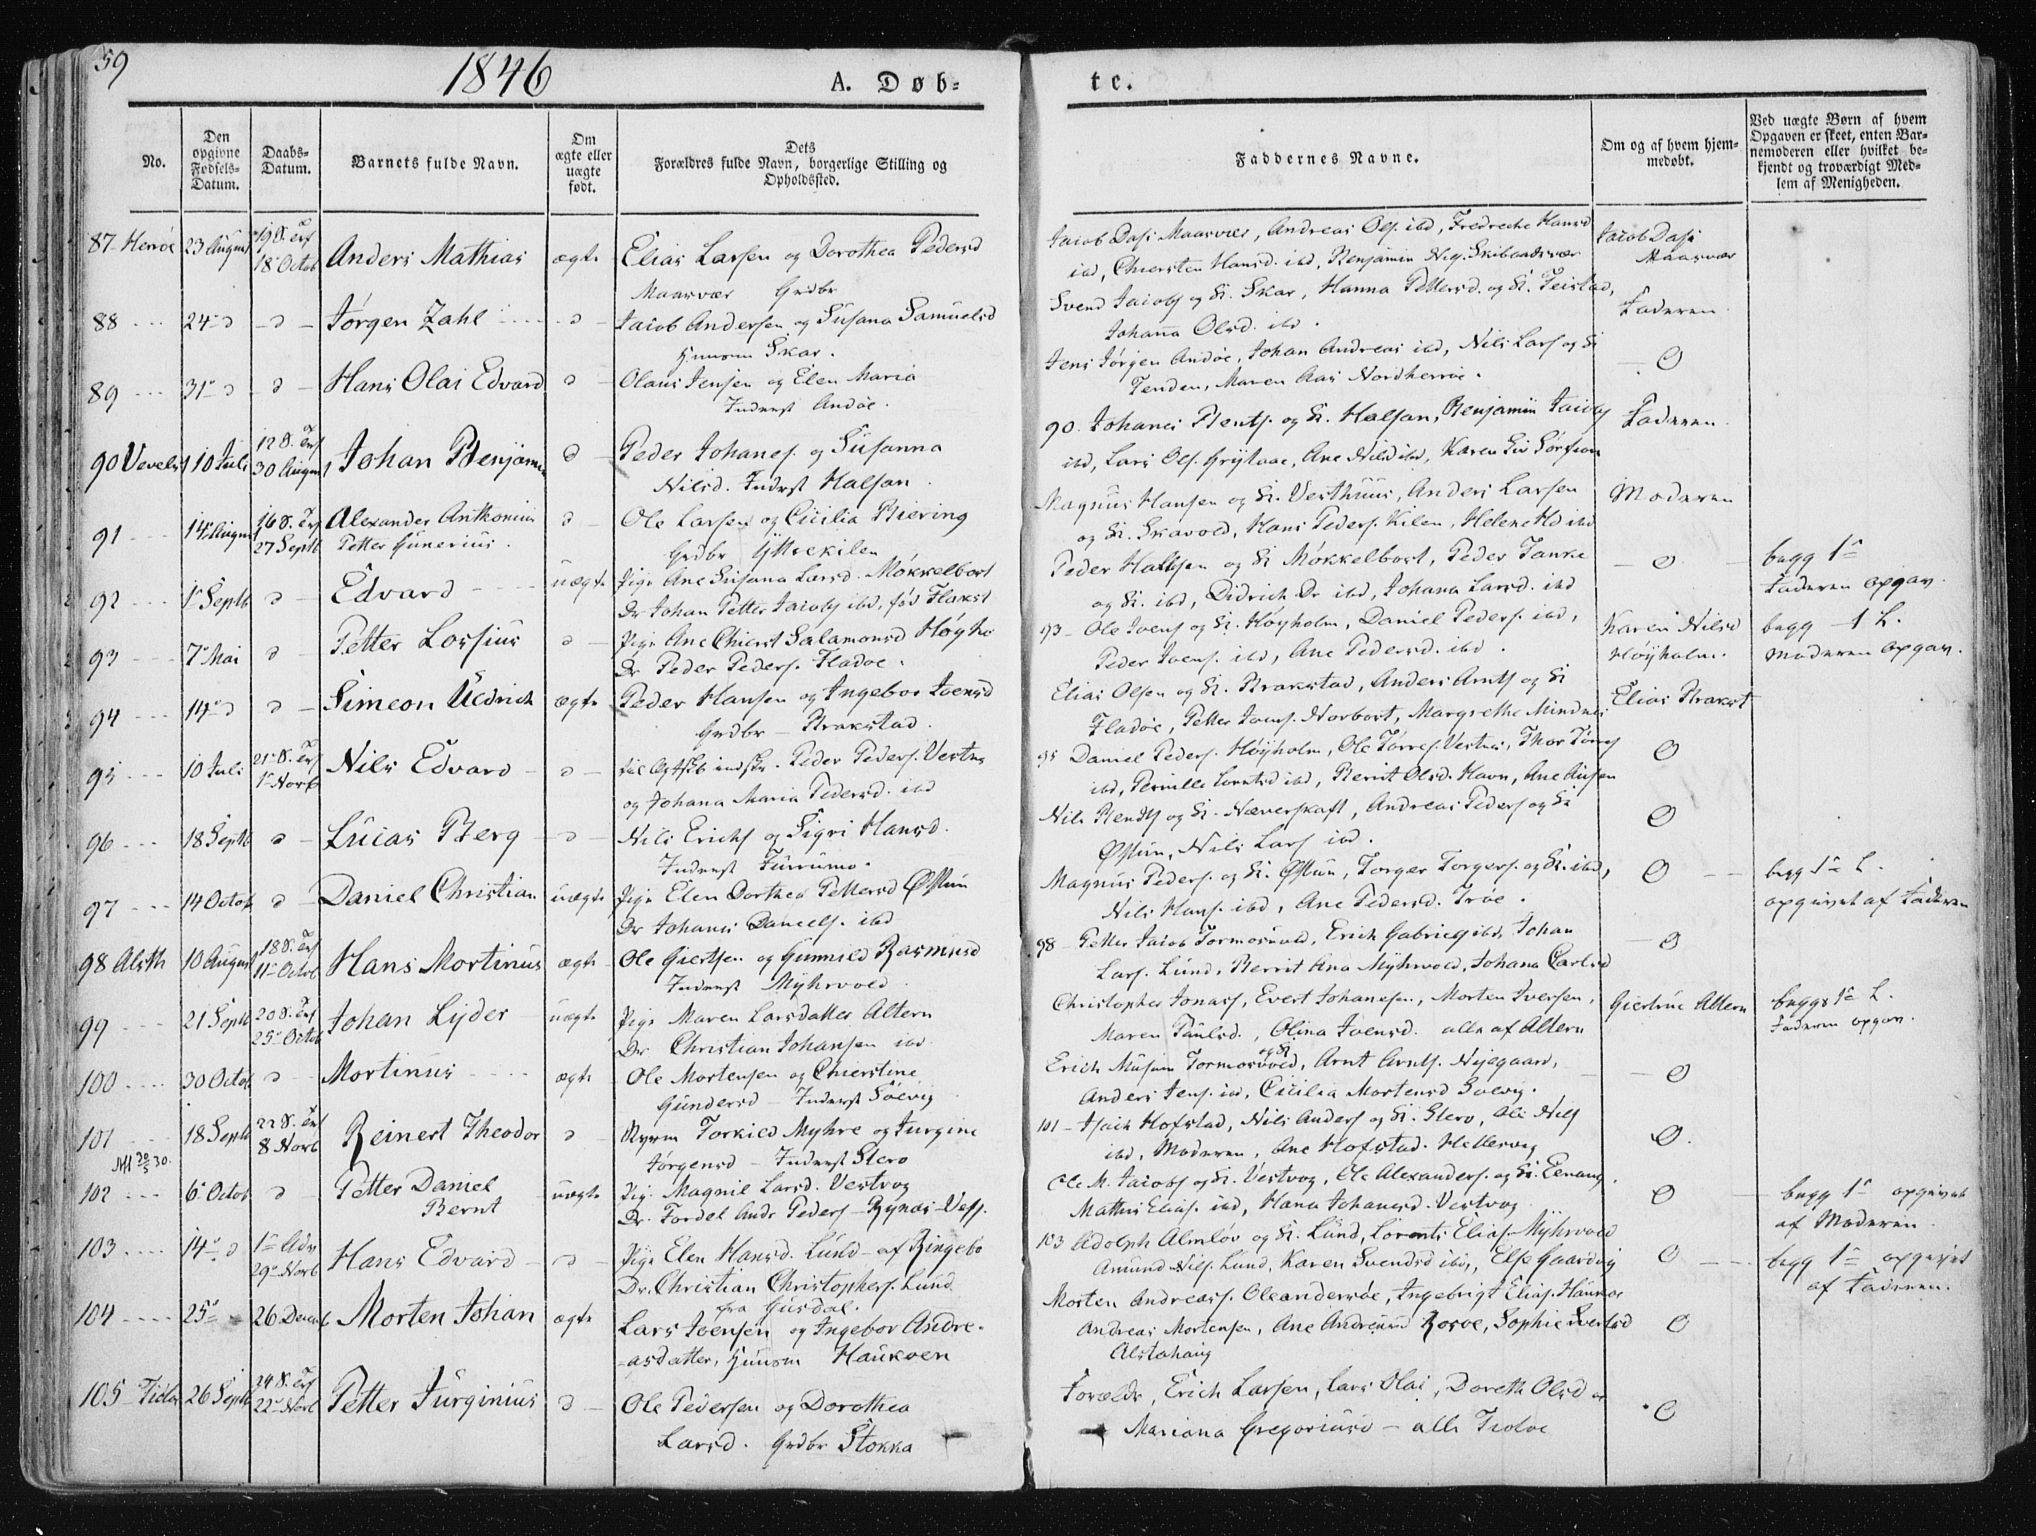 59
1846
A. Døb-
te.
No.
Den opgivne Fødsels-Datum.
Daabs-Datum.
Barnets fulde Navn.
Om ægte eller uægte født.
Dets Forældres fulde Navn, borgerlige Stilling og Opholdssted.
Faddernes Navne.
Om og af hvem hjem-medøbt.
Ved uægte Børn af hvem Opgaven er skeet, enten Bar-nemoderen eller hvilket be-kjendt og troværdigt Med-lem af Menigheden.
87 Herrøe 23 August 19 S. Trf 18 Octob Anders Mathias ægte Elias Larsen og Dorothea Pedersd
Maasvær Grdbr
Jacob Dass Maasvær, Andreas Ols. ibd, Fredreche Hansd
ibd, Chiersten Hansd. ibd, Benjamin
Jacob Dass Maasvær
88 24 d d Jørgen Zahl d Jacob Andersen og Susana Samuelsd
Huusm Skar.
Svend Jacobs og K. Skar, Hanna Pettersd. og K. Teistad,
Johana Olsd. ibd.
Faderen
89 31 d d Hans Olai Edvard d Olaus Jensen og Elen Maria
Inderst Andøe.
Jens Jørgen Andøe, Johan Andreas ibd, Nils Lars og K
Tenden, Maren Aas Nordherrøe.
O
90 Vevelst 10 Juli 12 S. Trf 30 August Johan Benjamin d Peder Johanes. og Susanna
Nilsd. Inderst Halsan.
90. Johanes Bents. og K. Halsan, Benjamin Jacobs
ibd, Lars Ols. , Ane Nilsd ibd, Karen
Faderen
91 14 August 16 S. Trf 27 Septb Alexander Anthonius
Petter Gunerius.
d Ole Larsen og Cicilia Biering
Grdbr Yttrekilen
Magnus Hansen og K. Vesthuus, Anders Larsen
og K. Skavold, Hans Peders. Kilen, Helene ibd
Moderen
92 1 Septb d Edvard uægte Pige Ane Susana Larsd. Møkkelbost
Dr Johan Petter Jacobs ibd, fød Flakst
Peder Hansen og K Møkkelbost, Peder Janke
og K. ibd, Didrich Dr ibd, Johana Larsd. ibd
O
begg 1
Faderen opgav.
93 7 Mai d Petter Lossius d Pige Ane Chierst Salamonsd Høyho
Dr Peder Peders. Fladøe.
93 Ole Ivers og K. Høyholm, Daniel Peders. ibd,
Peder Ivers. ibd, Ane Pedersd. ibd.
Karen Nilsd
Høyholm.
begg 1 L.
Moderen opgav.
94 14 d d Simeon Uldrich ægte Peder Hansen og Ingebor Ivensd
Grdbr Brakstad.
Elias Olsen og K. Brakstad, Anders Arnts og K
Fladøe, Petter Ivers. Norbost, Margrethe Mindnes
Elias Brakst
95 10 Juli 21 S. Trf 1 Novb Nils Edvard d Peder Peders. Vestnes
og Johana Maria Pedersd. ibd
95 Daniel Peders. Høyholm, Ole Torres. Vestnes, Thor Torres
ibd, Pernille ibd, Berrit Olsd. Havn, Ane
O
96 18 Septb d Lucas Berg d Nils Erichs og Sigri Hansd.
Inderst Furumo.
Nils Bendts og K. Næverskaft, Andreas Peders og K
Østun, Nils Lars ibd.
O
97 14 Octob d Daniel Christian uægte Pige Elen Dorthea Pettersd Østun
Dr Johanes Daniels. ibd
Magnus Peders. og K. Østun, Torger Torgers. og K. ibd,
Nils Hans. ibd, Ane Pedersd. Trøe.
O
begg 1 L.
opgivet af Faderen
98 Alsth 10 August 18 S. Trf 11 Octob Hans Mortinus ægte Ole Giertsen og Gunnild Rasmusd
Inderst Myhrvold
98 Petter Jacob Formosvold, Erich Gabriels ibd, Johan
Lars. Lund, Berrit Ana Myhrvold, Johana Carlsd
O
99 21 Septb 20 S. Trf 25 Octob Johan Lyder uægte Pige Maren Larsdatter Altern
Dr Christian Johansen ibd
Christopher Jonas, Evert Johanesen, Morten Iversen,
Maren Paulsd., Olina Ivensd. alle af Altern
Giertrue Altern
begges 1 L.
Faderen opgav.
100 30 Octob d Mortinus ægte Ole Mortensen og Chierstine
Gundersd Inderst Solvig
Erich Formosvold og K, Arnt Arnts. Nyegaard,
Anders Jens. ibd, Cicilia Mortensd Solvig.
O
101 18 Septb 22 S. Trf 8 Novb Reinert Theodor d Torkild Myhre og Jurgine
Jørgensd Inderst Stero
101 Isach Hofstad, Nils Anders og K. Stero, Ole Nils
ibd, Moderen, Ane Hofstad. Hellesvig
O.
102 6 Octob d Petter Daniel
Bernt
uægte Pige Magnil Larsd. Vestvog
Dr. Fordel Ande Peders
Ole M. Jacobs og K. Vestvog, Ole Alexanders. og K. ,
Mathis Elias. ibd, Hana Johanesd. Vestvog
O
begg 1 opgivet
af Moderen.
103 14 d 1 Adv 29 Novb Hans Edvard d Pige Elen Hansd. Lund af Ringebo
Dr. Christian Christophers. Lund
fra Gusdal.
103 Adolph Almlöv og K. Lund, Lorents Elias. Myhrvold
Amund Nils. Lund, Karen Svendsd ibd, Else Gaardvig
O
begg 1 opgivet
af Faderen.
104 25 26 Decemb Morten Johan ægte Lars Ivensen og Ingebor Andre-
asdatter, Huusm Haukøen
Morten Andreass. Oleanderøe, Ingebrigt Elias. Haukøe
Andreas Mortensen, Ane Andreasd Rosøe, Sophie Evertsd
Alstahaug
O
105 Tiøtøe 26 Septb 24 S. Trf 22 Novb Petter Jurginius d Ole Pedersen og Dorothea
Larsd. Grdbr Stokka
Forældr, Erich Larsen, Lars Olai, Doreth Olsd og
Mariana Gregoriusd alle Tiotøe
O